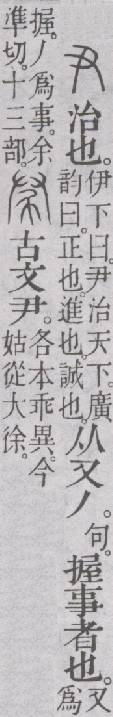 尹
治也。
伊下曰。尹治天下。廣
韵曰。正也。進也。誠也。
从又丿。
句。
握事者也。
又
爲
握。丿爲事。余
準切。十三部。
古文尹。
各本乖異。今
姑從大徐。